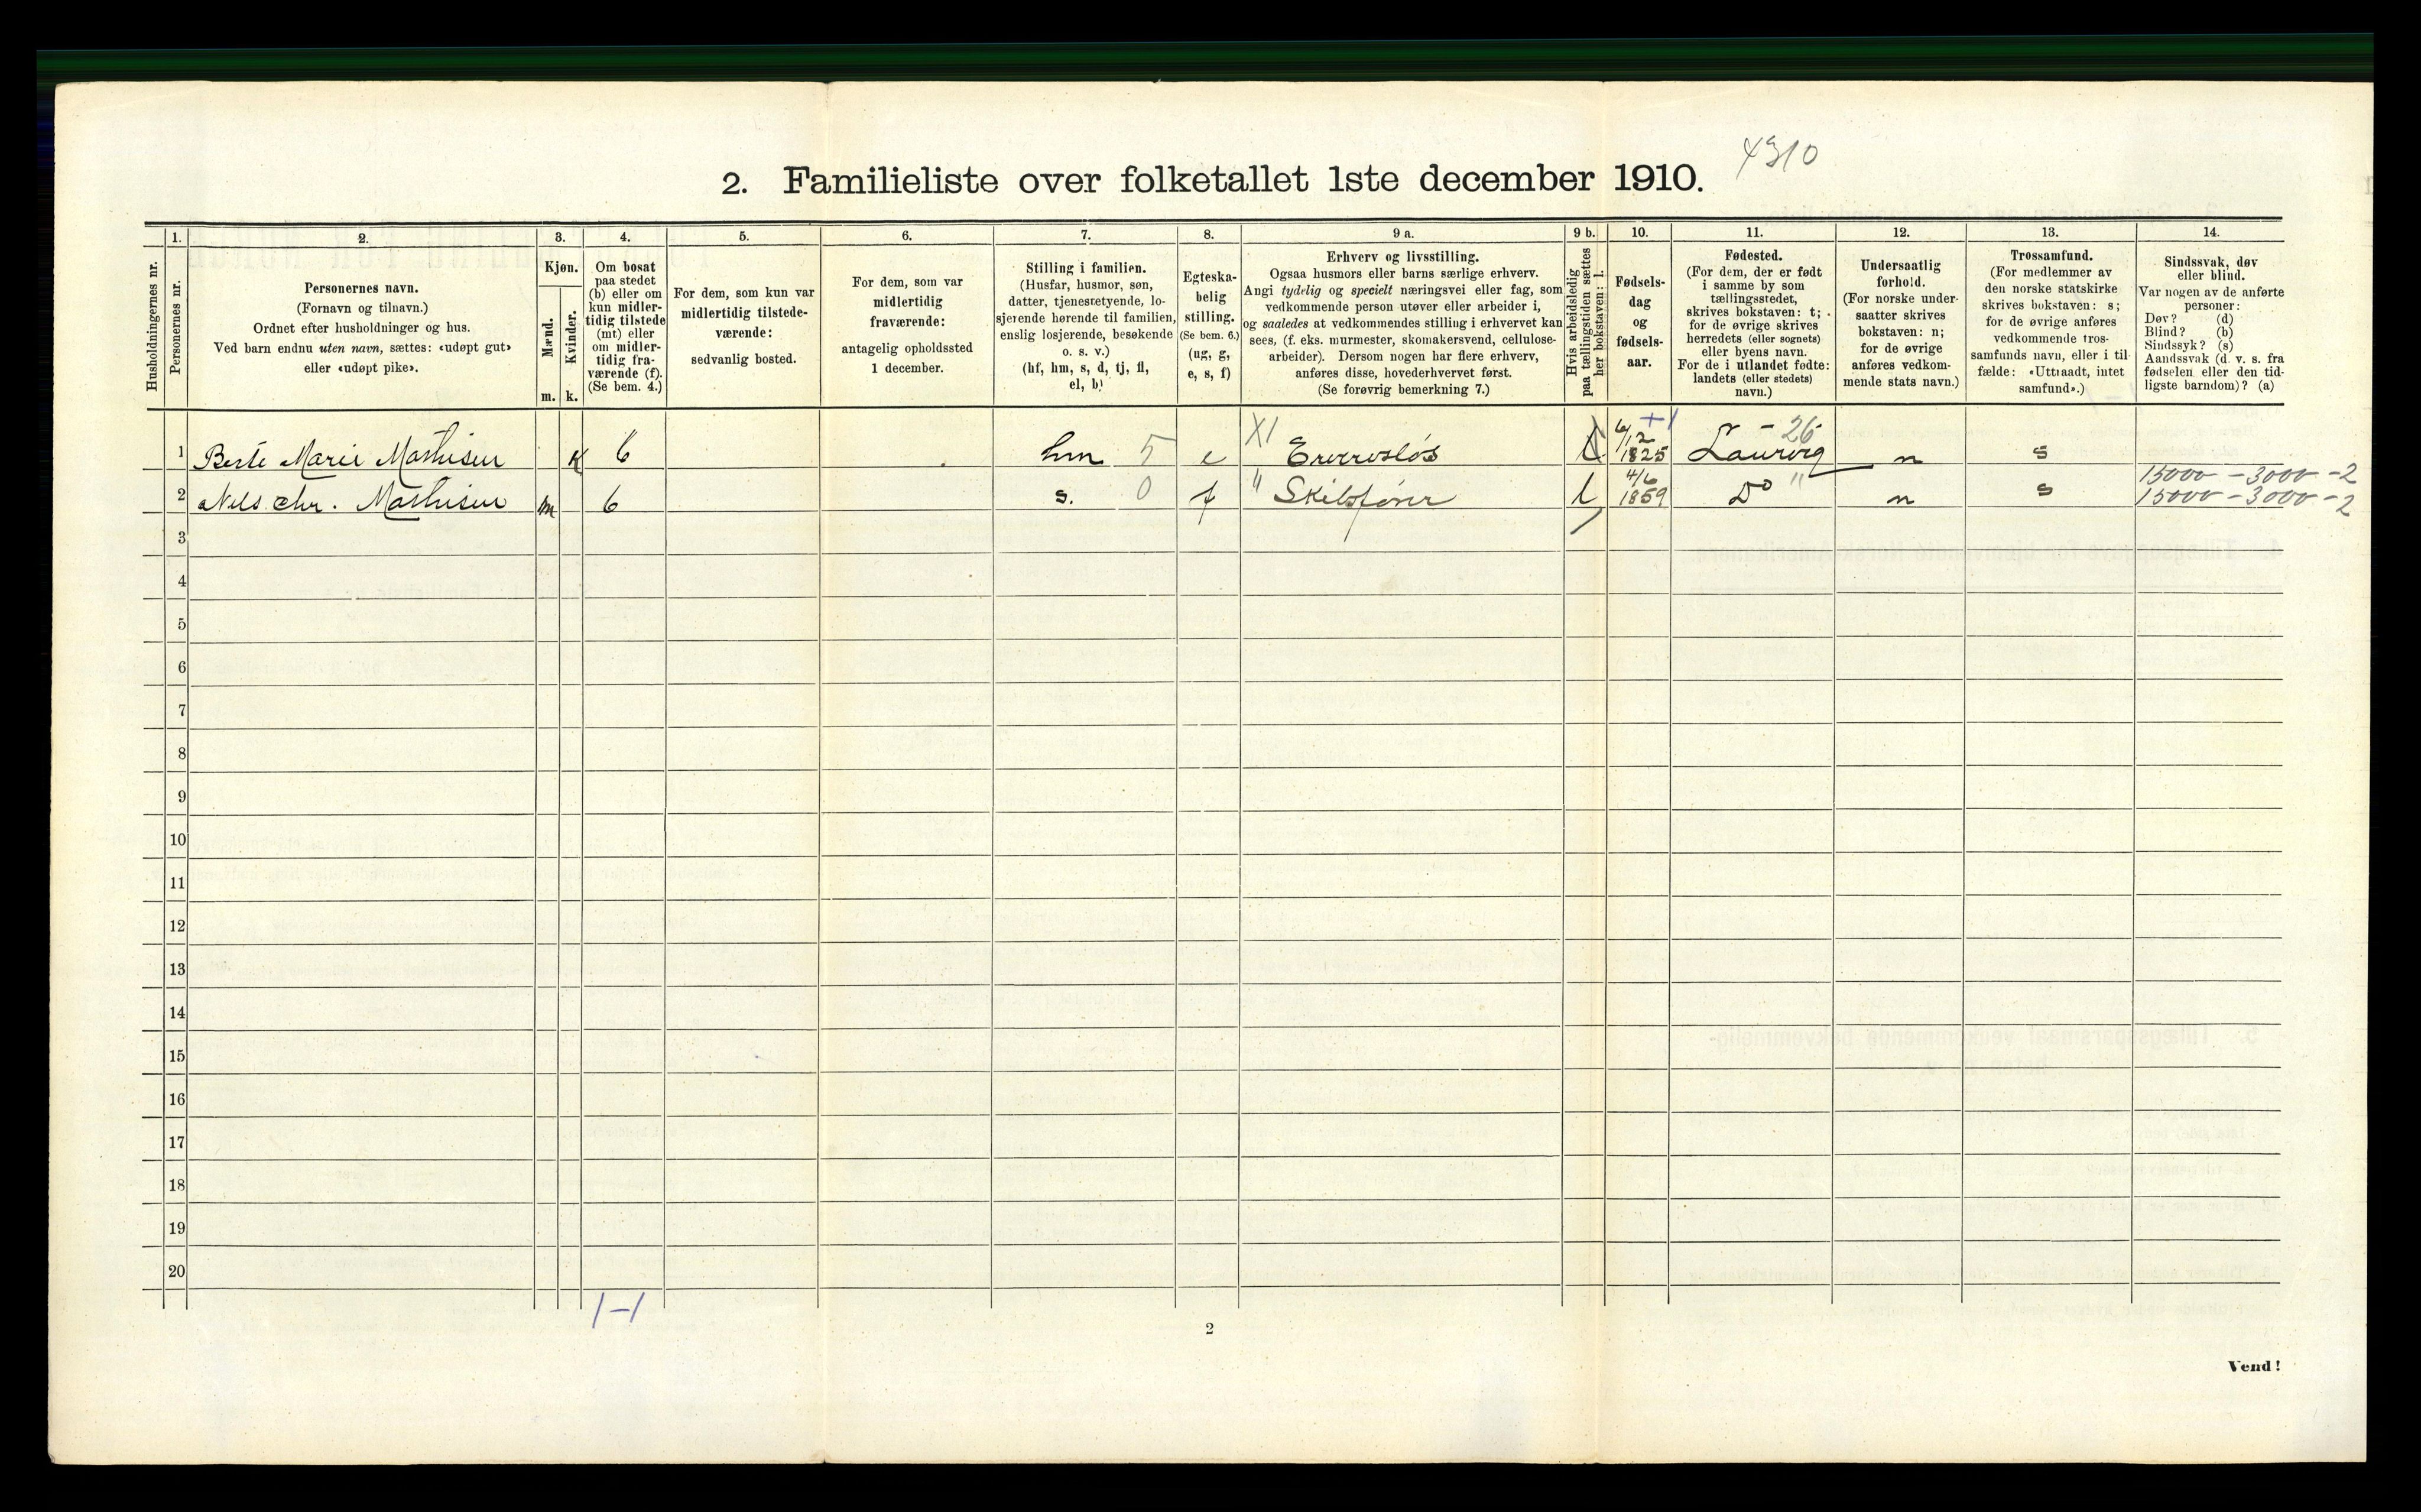 4310
2. Familieliste over folketallet 1ste december 1910.
Husholdningernes nr.
1.
Personernes nr.
2.
Personernes navn.
(Fornavn og tilnavn.)
Ordnet efter husholdninger og hus.
Ved barn endnu uten navn, sættes: «udøpt gut»
eller «udøpt pike».
3.
Kjøn.
Mænd.
m.
Kvinder.
k.
4.
Om bosat
paa stedet
(b) eller om
kun midler-
tidig tilstede
(mt) eller
om midler-
tidig fra-
værende (f).
(Se bem. 4.)
5.
For dem, som kun var
midlertidig tilstede-
værende:
sedvanlig bosted.
6.
For dem, som var
midlertidig
fraværende:
antagelig opholdssted
1 december.
7.
Stilling i familien.
(Husfar, husmor, søn,
datter, tjenestetyende, lo-
sjerende hørende til familien,
enslig losjerende, besøkende
o. s. v.)
(hf, hm, s, d, tj, fl,
el, b)
8.
Egteska-
belig
stilling.
(Se bem. 6.)
(ug, g,
e, s, f)
9 a.
Erhverv og livsstilling.
Ogsaa husmors eller barns særlige erhverv.
Angi tydelig og specielt næringsvei eller fag, som
vedkommende person utøver eller arbeider i,
og saaledes at vedkommendes stilling i erhvervet kan
sees, (f. eks. murmester, skomakersvend, cellulose-
arbeider). Dersom nogen har flere erhverv,
anføres disse, hovederhvervet først.
(Se forøvrig bemerkning 7.)
9 b.
Hvis arbeidsledig
paa tællingstiden sættes
her bokstaven: l.
10.
Fødsels-
dag
og
fødsels-
aar.
11.
Fødested.
(For dem, der er født
i samme by som
tællingsstedet,
skrives bokstaven: t;
for de øvrige skrives
herredets (eller sognets)
eller byens navn.
For de i utlandet fødte:
landets (eller stedets)
navn.)
12.
Undersaatlig
forhold.
(For norske under-
saatter skrives
bokstaven: n;
for de øvrige
anføres vedkom-
mende stats navn.)
13.
Trossamfund.
(For medlemmer av
den norske statskirke
skrives bokstaven: s;
for de øvrige anføres
vedkommende tros-
samfunds navn, eller i til-
fælde: «Uttraadt, intet
samfund».)
14.
Sindssvak, døv
eller blind.
Var nogen av de anførte
personer:
Døv? (d)
Blind? (b)
Sindssyk? (s)
Aandssvak (d. v. s. fra
fødselen eller den tid-
ligste barndom)? (a)
1 Berte Marie Mathisen K 6 hm 5 e XI Erverosløs l 6/12 1825 +1 Laurvig - 26 n s 15000 - 3000 - 2
2 Nels Chr. Mathisen m 6 s. 0 f " Skibsfører l 4/6 1859 Do " n s 15000 - 3000 - 2
3
4
5
6
7
8
9
10
11
12
13
14
15
16
17
18
19
20
1-1
2
Vend!